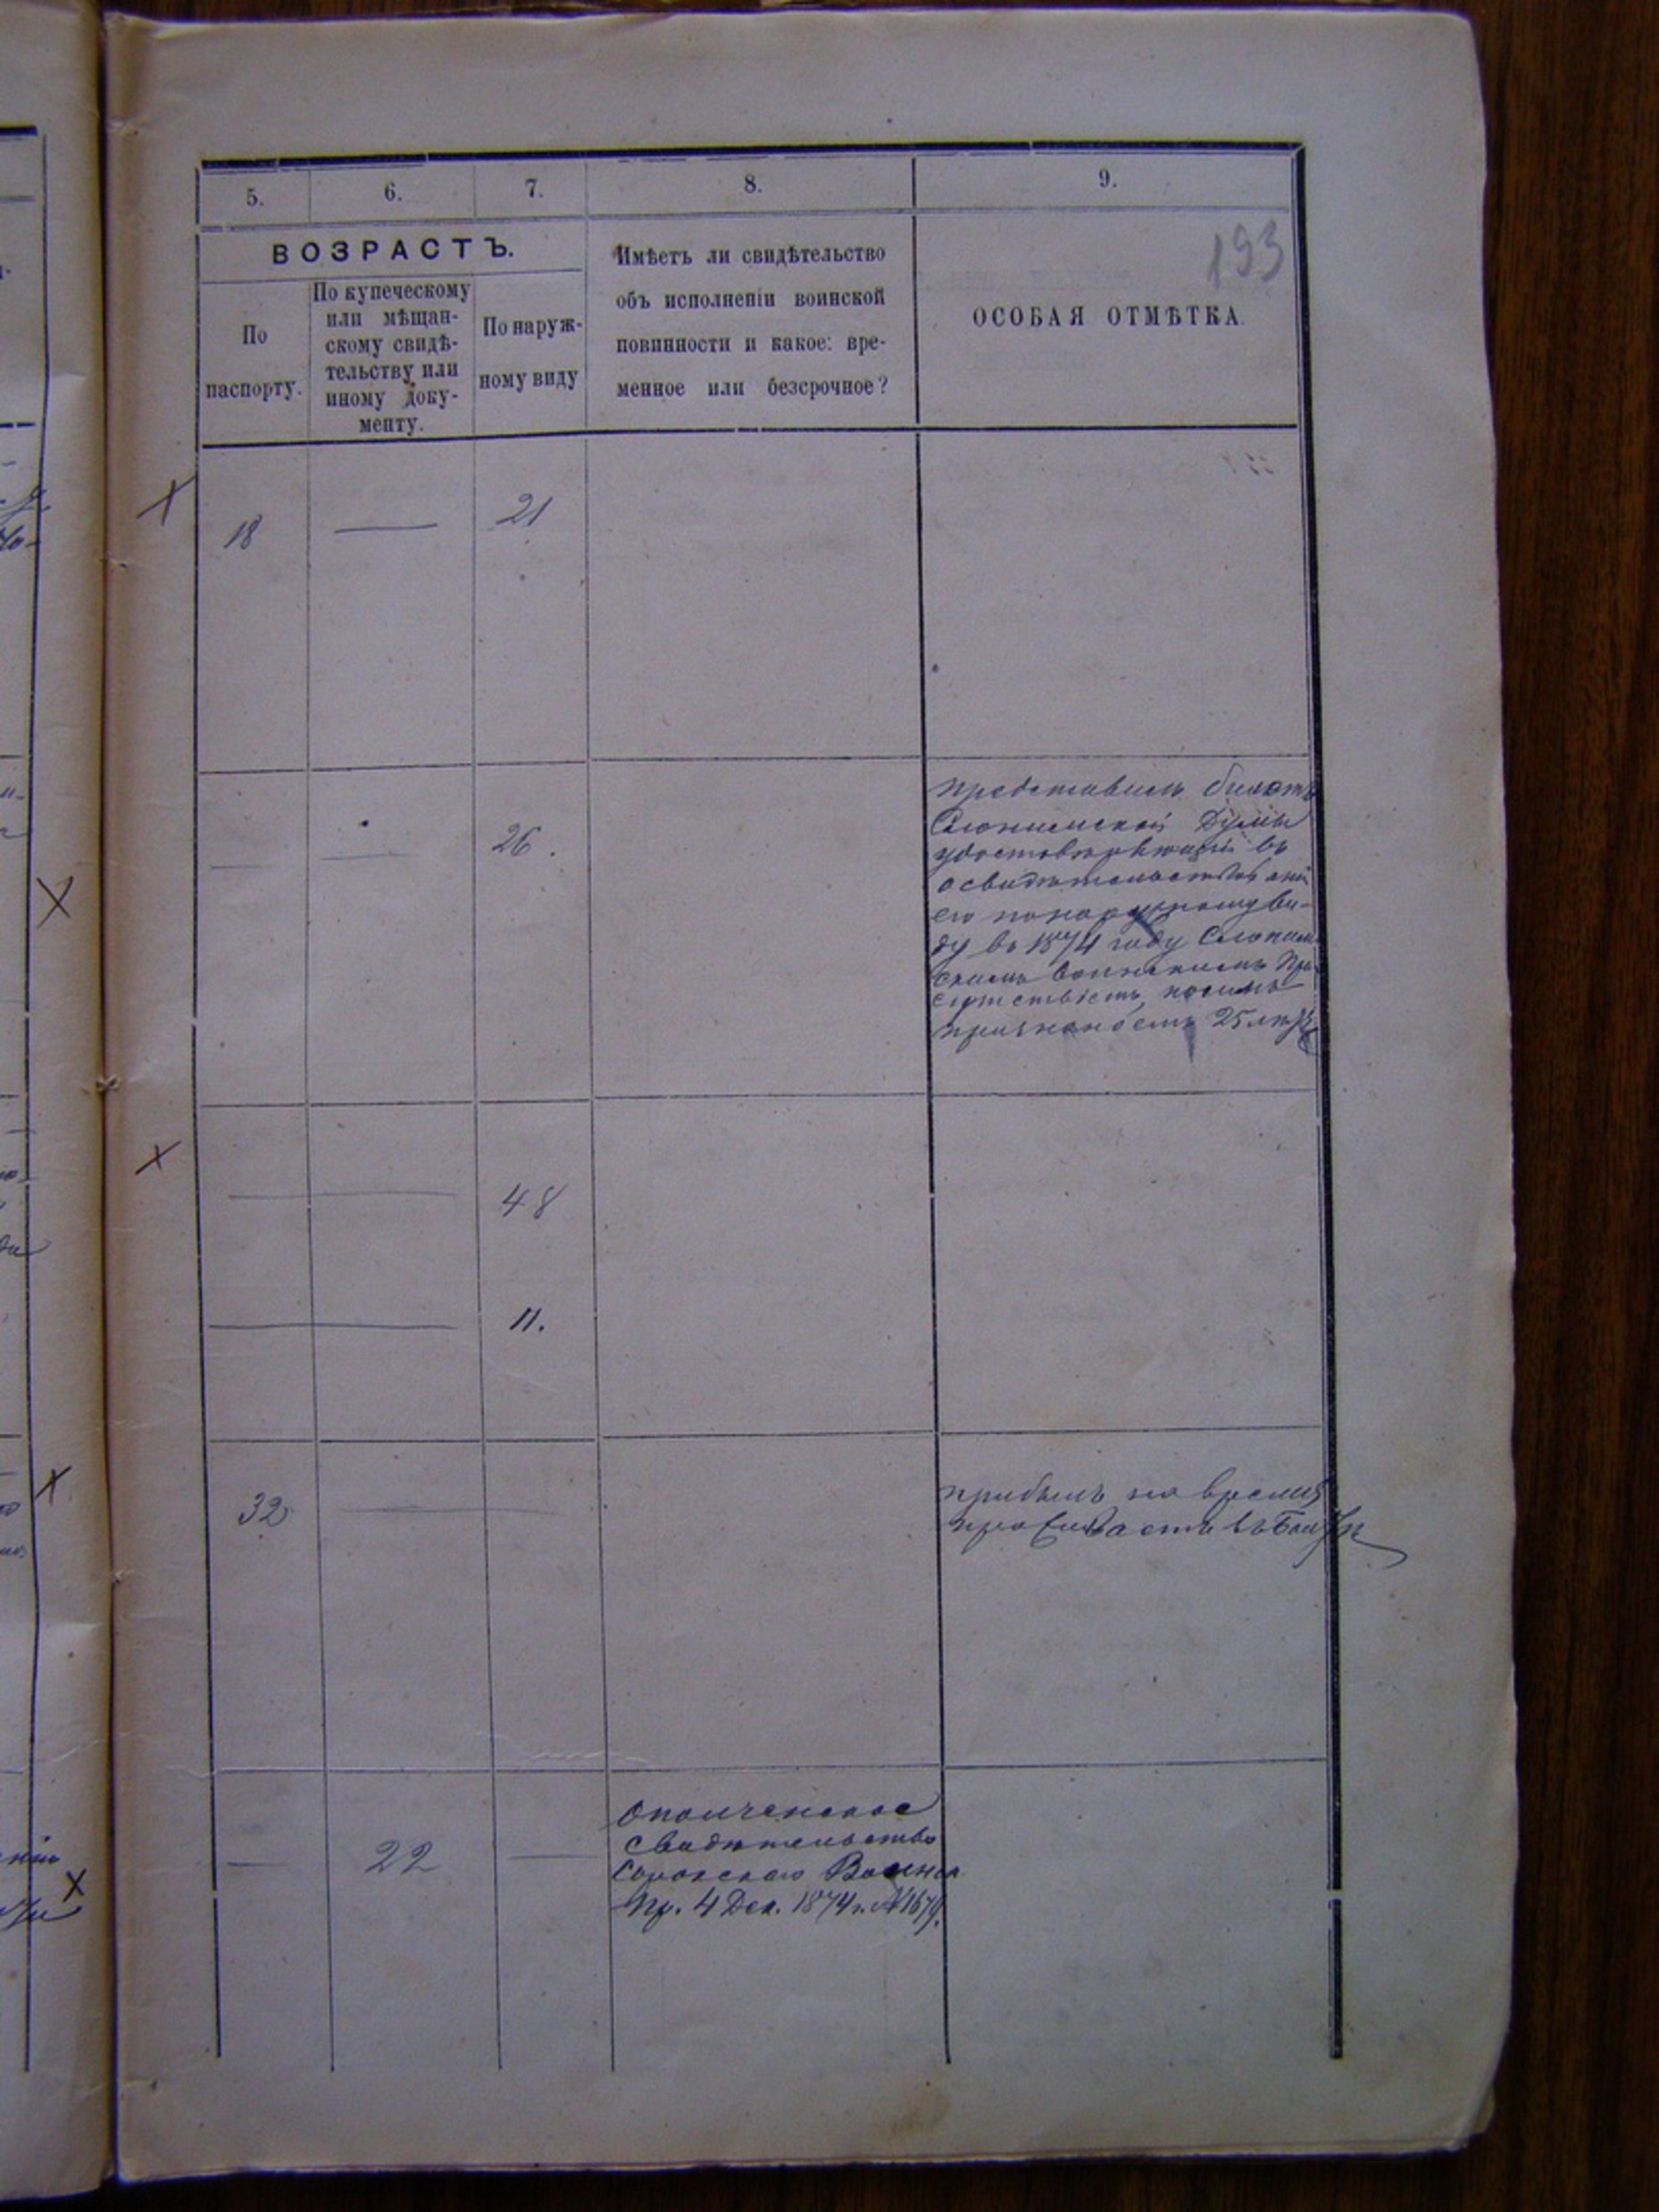 5. 6. 7. 8. 9.
193
ВОЗРАСТЪ.
По
паспорту.
По купеческому
или мѣщан-
скому свидѣ-
тельству или
иному доку-
менту.
По наруж-
ному виду
Имѣетъ ли свидѣтельство
объ исполненіи воинской
повинности и какое: вре-
менное или безсрочное?
ОСОБАЯ ОТМѢТКА.
18 — 21
— — 26.
представилъ билетъ
Слонимской Думы
въ
освидѣтельствованіи
его по наружному ви-
ду въ 1874 году Слоним
скимъ воинскимъ При
сутствіемъ, коимъ
признанъ емъ 25 лѣтъ
— — 48
— — 11.
32 —
прибылъ на время
проживаетъ въ
— 22 —
Ополченское
свидѣтельство
Сорокскаго Воинск.
Пр. 4 Дек. 1874 г. №1679.